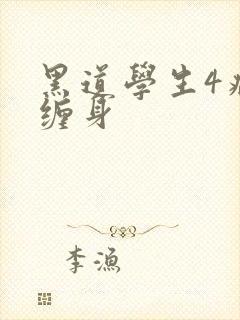 黑道學生4
缠身
李漁